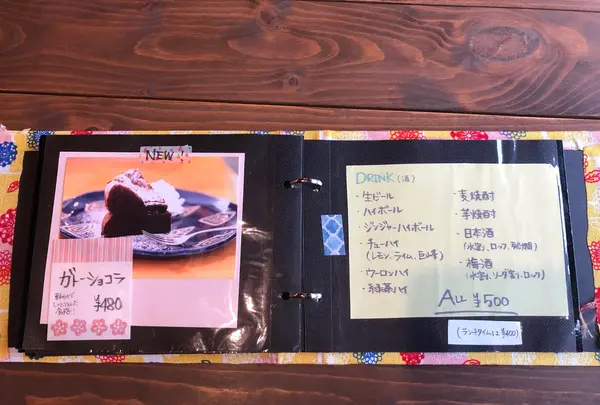 NEW
ガトーショコラ
¥480
DRINK (酒)
・生ビール
・ハイボール
・ジンジャーハイボール
・チューハイ
(レモン、ライム、巨峰)
・ウーロンハイ
・緑茶ハイ
・麦焼酎
・芋焼酎
・日本酒
・梅酒
ALL ¥500
(ランチタイムは¥400)